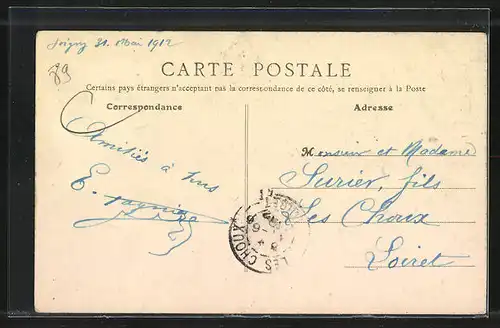 Joigny 31 Mai 1912
89
CARTE POSTALE
Certains pays étrangers n'acceptant pas la correspondance de ce côté, se renseigner à la Poste
Correspondance
Adresse
Amitiés à tous
E.
Monsieur et Madame
Surier, fils
Les Choux
Loiret
LES CHOUX